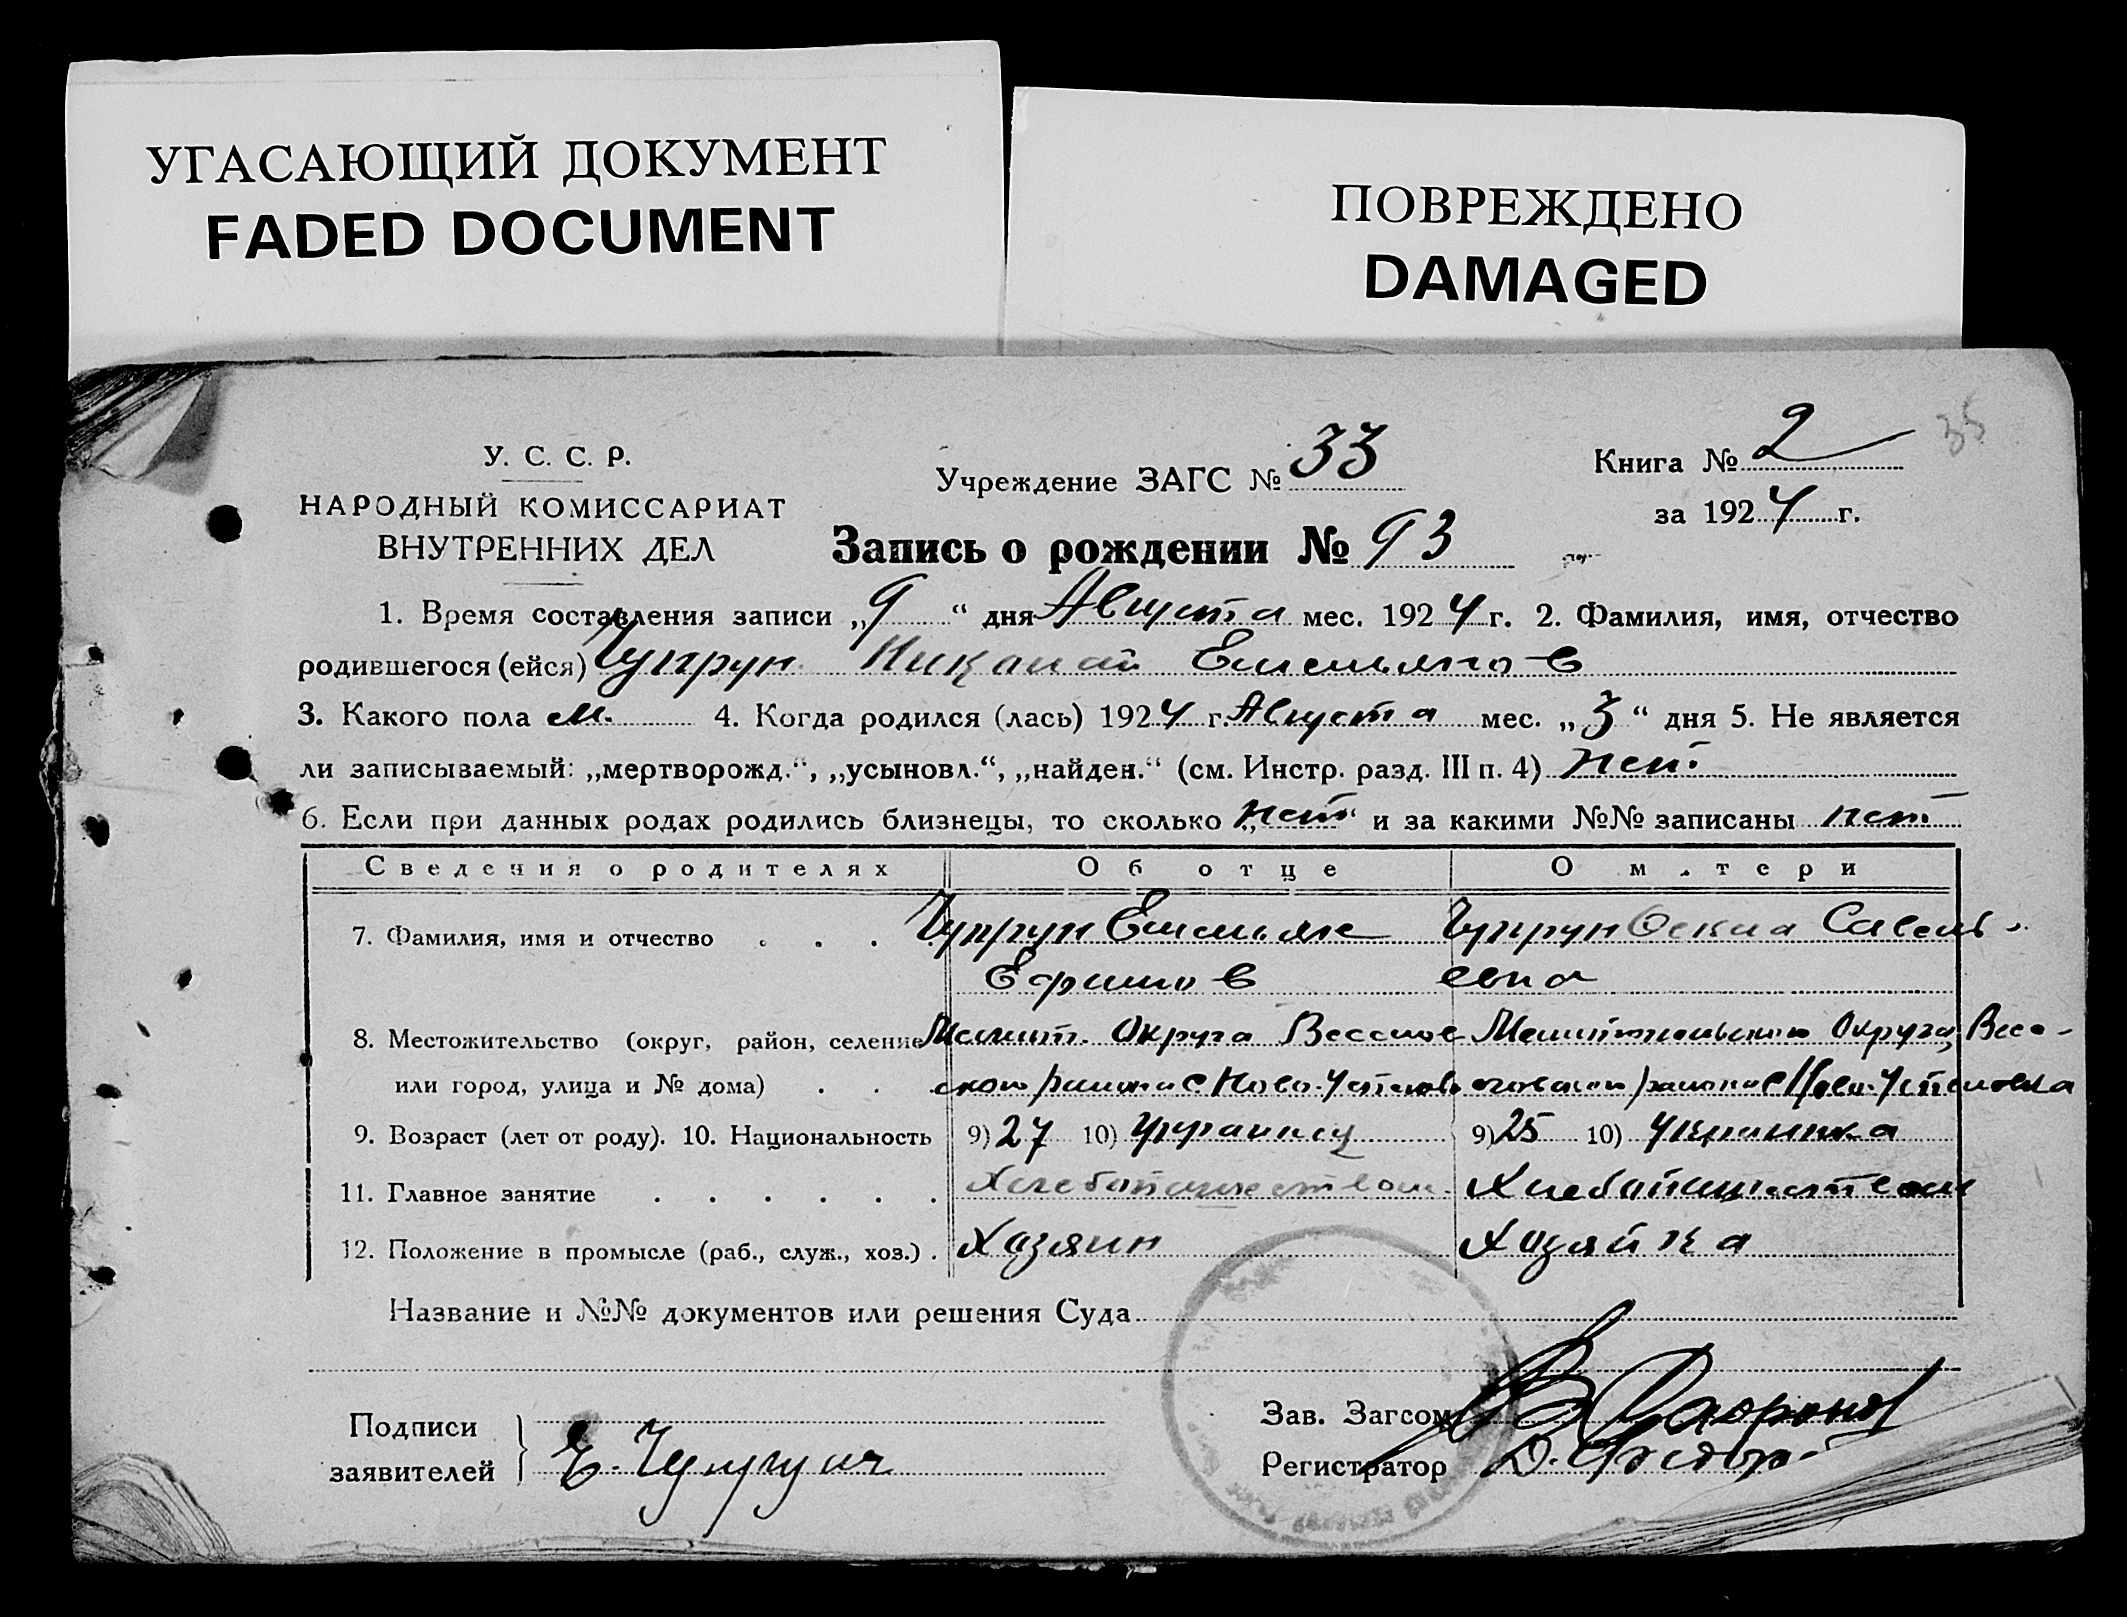 УГАСАЮЩИЙ ДОКУМЕНТ
FADED DOCUMENT
ПОВРЕЖДЕНО
DAMAGED
35
У. С. С. Р.
НАРОДНЫЙ КОМИССАРИАТ
ВНУТРЕННИХ ДЕЛ
Учреждение ЗАГС № 33
Книга № 2
за 1924 г.
Запись о рождении № 93
1. Время составления записи „9“ дня Августа мес. 1924 г. 2. Фамилия, имя, отчество
родившегося (ейся) Чупрун Емельянов
3. Какого пола м. 4. Когда родился (лась) 1924 г. Августа мес. „3“ дня 5. Не является
ли записываемый: „мертворожд.“, „усыновл.“, „найден.“ (см. Инстр. разд. III п. 4) Нет
6. Если при данных родах родились близнецы, то сколько „нет“ и за какими №№ записаны нет
Сведения о родителях Об отце О матери
7. Фамилия, имя и отчество . . . Чупрун Емельян Чупрун Савель-
Ефимов евна
8. Местожительство (округ, район, селение Мелит. Округа Веселов Мелитопольского Округа, Весе-
или город, улица и № дома) . . ского района с Ново-Успенов района с Ново-Успеновка
9. Возраст (лет от роду). 10. Национальность 9) 27 10) Украинец 9) 25 10) Украинка
11. Главное занятие . . . . . . Хлебопашеством. Хлебопашеством
12. Положение в промысле (раб., служ., хоз.) . Хозяин Хозяйка
Название и №№ документов или решения Суда
Подписи
заявителей
Е. Чупрун
Зав. Загсом
Регистратор